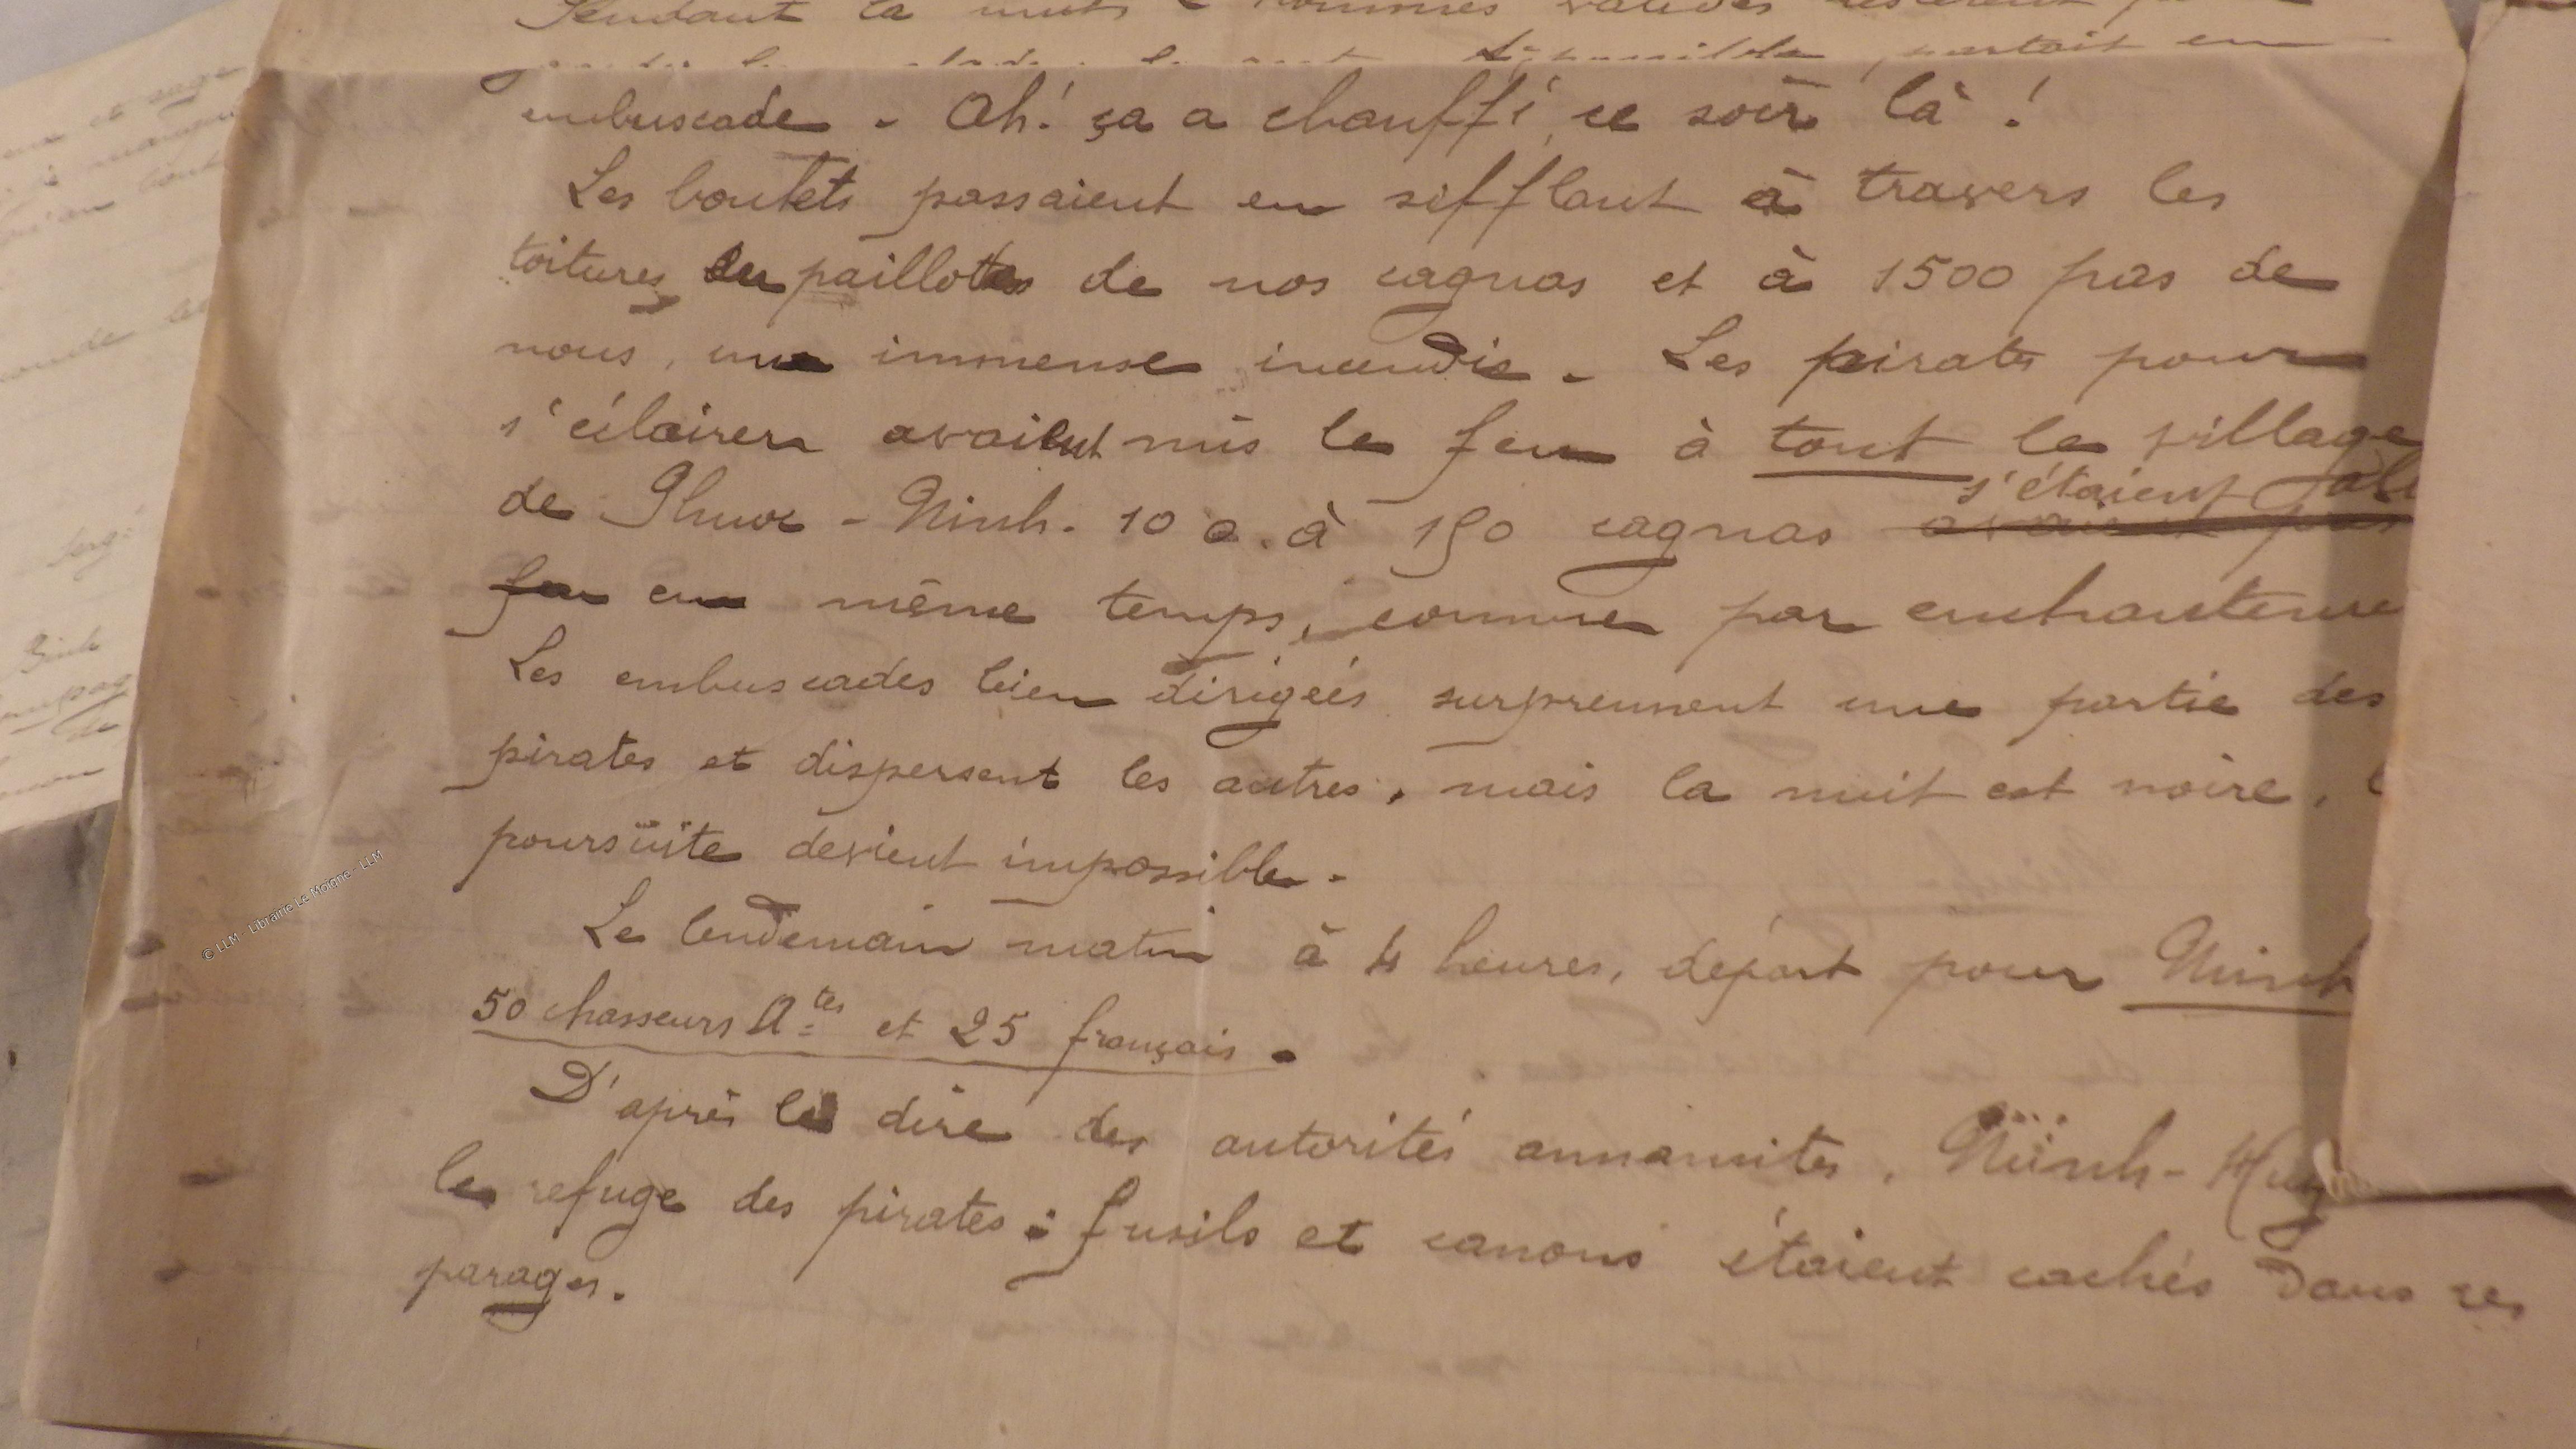 Pendant la nuit hommes valides restèrent
disponible, partait en
embuscade - Ah! ça a chauffé, ce soir là !
Les boulets passaient en sifflant à travers les
toitures en paillottes de nos cagnas et à 1500 pas de
nous, un immense incendie - Les pirates pour
s'éclairer avaient mis le feu à tout le village
s'étaient
de Phuoc - Ninh. 100 à 150 cagnas
feu en même temps, comme par enchanteme
Les embuscades bien dirigées surprennent une partie des
pirates et dispersent les autres, mais la nuit est noire, l
poursuite devient impossible -
Le lendemain matin à 4 heures, départ pour Ninh
50 chasseurs A.tes et 25 français.
D'après le dire des autorités annamites, Ninh-Huy
le refuge des pirates : fusils et canons étaient cachés dans ces
parages.
© LLM - Librairie Le Moigne - LLM